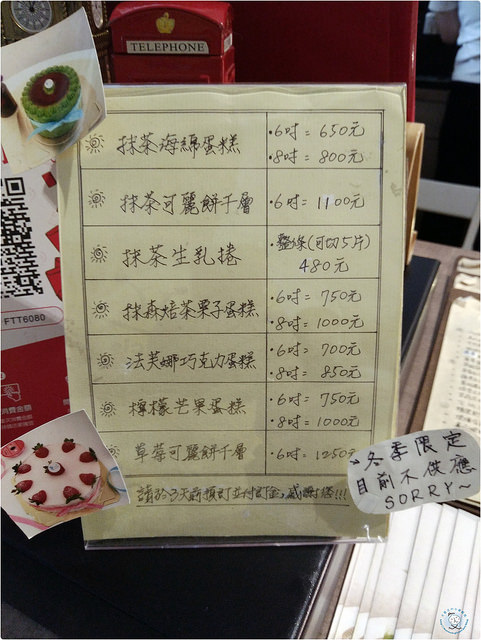 TELEPHONE
抹茶海綿蛋糕
·6吋=650元
·8吋=800元
抹茶可麗餅千層
·6吋=1100元
抹茶生乳捲
·整條(可切5片)
480元
抹森焙茶栗子蛋糕
·6吋=750元
·8吋=1000元
法芙娜巧克力蛋糕
·6吋=700元
·8吋=850元
檸檬芒果蛋糕
·6吋=750元
·8吋=1000元
草莓可麗餅千層
·6吋=1250
冬季限定
目前不供應
SORRY~
請於3天前預訂並付訂金,感謝您!!!
FTT6080
消費金額